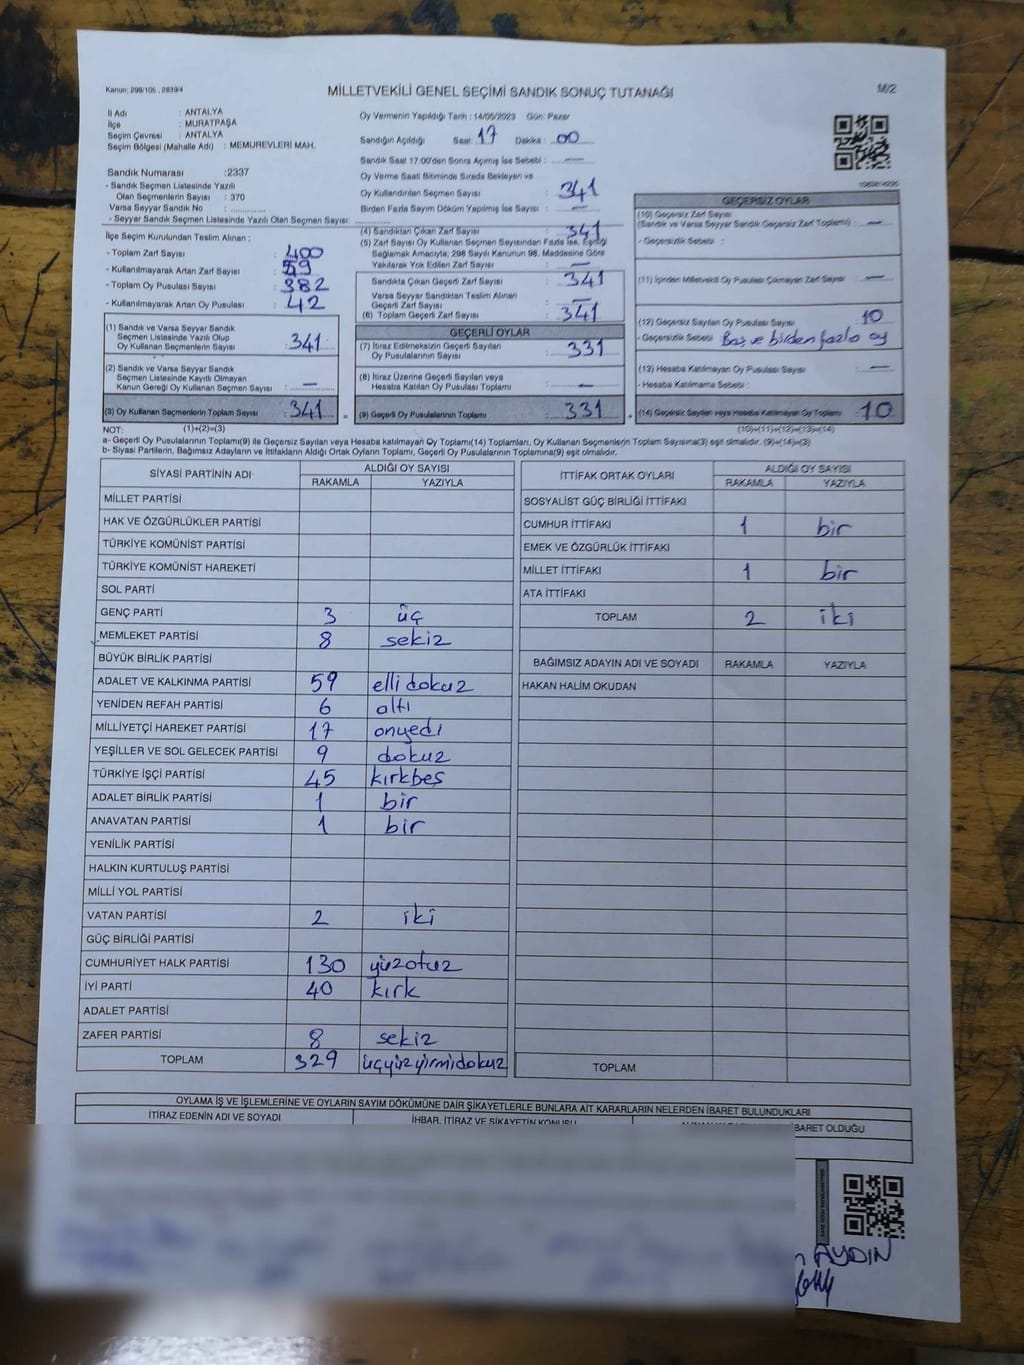 Kanun: 298/105 , 2839/4
MİLLETVEKİLİ GENEL SEÇİMİ SANDIK SONUÇ TUTANAĞI
M/2
İl Adı : ANTALYA
İlçe : MURATPAŞA
Seçim Çevresi : ANTALYA
Seçim Bölgesi (Mahalle Adı) : MEMUREVLERİ MAH.
Sandık Numarası :2337
- Sandık Seçmen Listesinde Yazılı
Olan Seçmenlerin Sayısı : 370
Varsa Seyyar Sandık No :
- Seyyar Sandık Seçmen Listesinde Yazılı Olan Seçmen Sayısı:
İlçe Seçim Kurulundan Teslim Alınan ;
- Toplam Zarf Sayısı : 400
- Kullanılmayarak Artan Zarf Sayısı : 59
- Toplam Oy Pusulası Sayısı : 382
- Kullanılmayarak Artan Oy Pusulası : 42
(1) Sandık ve Varsa Seyyar Sandık
Seçmen Listesinde Yazılı Olup
Oy Kullanan Seçmenlerin Sayısı : 341
(2) Sandık ve Varsa Seyyar Sandık
Seçmen Listesinde Kayıtlı Olmayan
Kanun Gereği Oy Kullanan Seçmen Sayısı : —
(3) Oy Kullanan Seçmenlerin Toplam Sayısı : 341
Oy Vermenin Yapıldığı Tarih : 14/05/2023 Gün: Pazar
Sandığın Açıldığı Saat: 17 Dakika : 00
Sandık Saat 17:00'den Sonra Açmış İse Sebebi : —
Oy Verme Saati Bitiminde Sırada Bekleyen ve
Oy Kullandırılan Seçmen Sayısı : 341
Birden Fazla Sayım Döküm Yapılmış İse Sayısı : —
(4) Sandıktan Çıkan Zarf Sayısı : 341
(5) Zarf Sayısı Oy Kullanan Seçmen Sayısından Fazla İse, Eşitliği
Sağlamak Amacıyla; 298 Sayılı Kanunun 98. Maddesine Göre
Yakılarak Yok Edilen Zarf Sayısı : —
Sandıkta Çıkan Geçerli Zarf Sayısı : 341
Varsa Seyyar Sandıktan Teslim Alınan
Geçerli Zarf Sayısı : —
(6) Toplam Geçerli Zarf Sayısı : 341
GEÇERLİ OYLAR
(7) İtiraz Edilmeksizin Geçerli Sayılan
Oy Pusulalarının Sayısı : 331
(8) İtiraz Üzerine Geçerli Sayılan veya
Hesaba Katılan Oy Pusulası Toplamı : —
= (9) Geçerli Oy Pusulalarının Toplamı : 331
GEÇERSİZ OYLAR
(10) Geçersiz Zarf Sayısı
(Sandık ve Varsa Seyyar Sandık Geçersiz Zarf Toplamı) : —
- Geçersizlik Sebebi :
(11) İçinden Milletvekili Oy Pusulası Çıkmayan Zarf Sayısı : —
(12) Geçersiz Sayılan Oy Pusulası Sayısı : 10
- Geçersizlik Sebebi : Boş ve birden fazla oy
(13) Hesaba Katılmayan Oy Pusulası Sayısı : —
- Hesaba Katılmama Sebebi :
+ (14) Geçersiz Sayılan veya Hesaba Katılmayan Oy Toplamı : 10
NOT: (1)+(2)=(3) (10)+(11)+(12)+(13)=(14)
a- Geçerli Oy Pusulalarının Toplamı(9) ile Geçersiz Sayılan veya Hesaba katılmayan Oy Toplamı(14) Toplamları, Oy Kullanan Seçmenlerin Toplam Sayısına(3) eşit olmalıdır. (9)+(14)=(3)
b- Siyasi Partilerin, Bağımsız Adayların ve İttifakların Aldığı Ortak Oyların Toplamı, Geçerli Oy Pusulalarının Toplamına(9) eşit olmalıdır.
SİYASİ PARTİNİN ADI ALDIĞI OY SAYISI
RAKAMLA YAZIYLA
MİLLET PARTİSİ
HAK VE ÖZGÜRLÜKLER PARTİSİ
TÜRKİYE KOMÜNİST PARTİSİ
TÜRKİYE KOMÜNİST HAREKETİ
SOL PARTİ
GENÇ PARTİ 3 üç
MEMLEKET PARTİSİ 8 sekiz
BÜYÜK BİRLİK PARTİSİ
ADALET VE KALKINMA PARTİSİ 59 elli dokuz
YENİDEN REFAH PARTİSİ 6 altı
MİLLİYETÇİ HAREKET PARTİSİ 17 onyedi
YEŞİLLER VE SOL GELECEK PARTİSİ 9 dokuz
TÜRKİYE İŞÇİ PARTİSİ 45 kırkbeş
ADALET BİRLİK PARTİSİ 1 bir
ANAVATAN PARTİSİ 1 bir
YENİLİK PARTİSİ
HALKIN KURTULUŞ PARTİSİ
MİLLİ YOL PARTİSİ
VATAN PARTİSİ 2 iki
GÜÇ BİRLİĞİ PARTİSİ
CUMHURİYET HALK PARTİSİ 130 yüzotuz
İYİ PARTİ 40 kırk
ADALET PARTİSİ
ZAFER PARTİSİ 8 sekiz
TOPLAM 329 üçyüzyirmidokuz
İTTİFAK ORTAK OYLARI ALDIĞI OY SAYISI
RAKAMLA YAZIYLA
SOSYALİST GÜÇ BİRLİĞİ İTTİFAKI
CUMHUR İTTİFAKI 1 bir
EMEK VE ÖZGÜRLÜK İTTİFAKI
MİLLET İTTİFAKI 1 bir
ATA İTTİFAKI
TOPLAM 2 iki
BAĞIMSIZ ADAYIN ADI VE SOYADI RAKAMLA YAZIYLA
HAKAN HALİM OKUDAN
TOPLAM
OYLAMA İŞ VE İŞLEMLERİNE VE OYLARIN SAYIM DÖKÜMÜNE DAİR ŞİKAYETLERLE BUNLARA AİT KARARLARIN NELERDEN İBARET BULUNDUKLARI
İTİRAZ EDENİN ADI VE SOYADI
İHBAR, İTİRAZ VE ŞİKAYETİN KONUSU
İBARET OLDUĞU
AYDIN